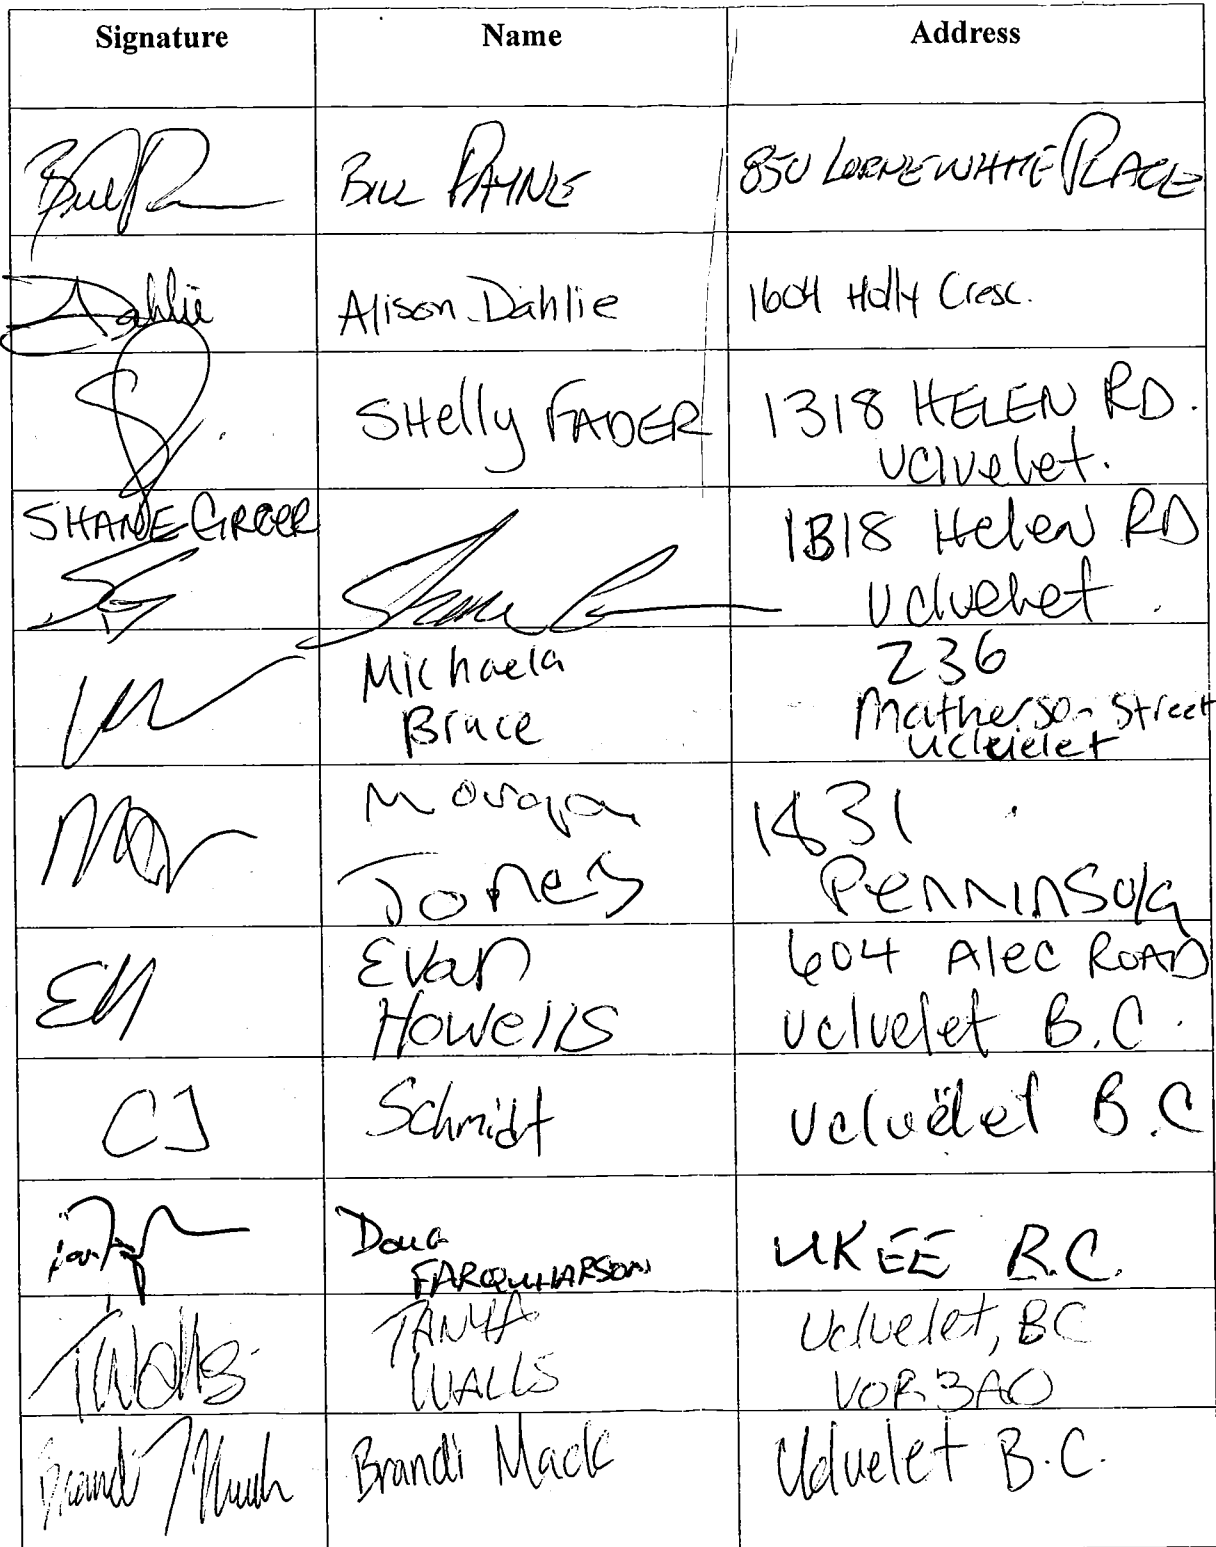 Signature Name Address
Bill Payne 850 Lorne White Place
Dahlie Alison Dahlie 1604 Holly Cresc.
Shelly Fader 1318 Helen RD.
Ucluelet.
Shane Greer 1318 Helen RD
Ucluelet.
Michaela 236
Bruce Matherson Street
Ucluelet
Morgan 1831
Jones Penninsula
Evan 604 Alec Road
Howells Ucluelet B.C.
CJ Schmidt Ucluelet B.C
Doug
Farquharson UKEE B.C.
TWalls Tanya Ucluelet, BC
Walls V0R 3A0
Brandi Mack Brandi Mack Ucluelet B.C.